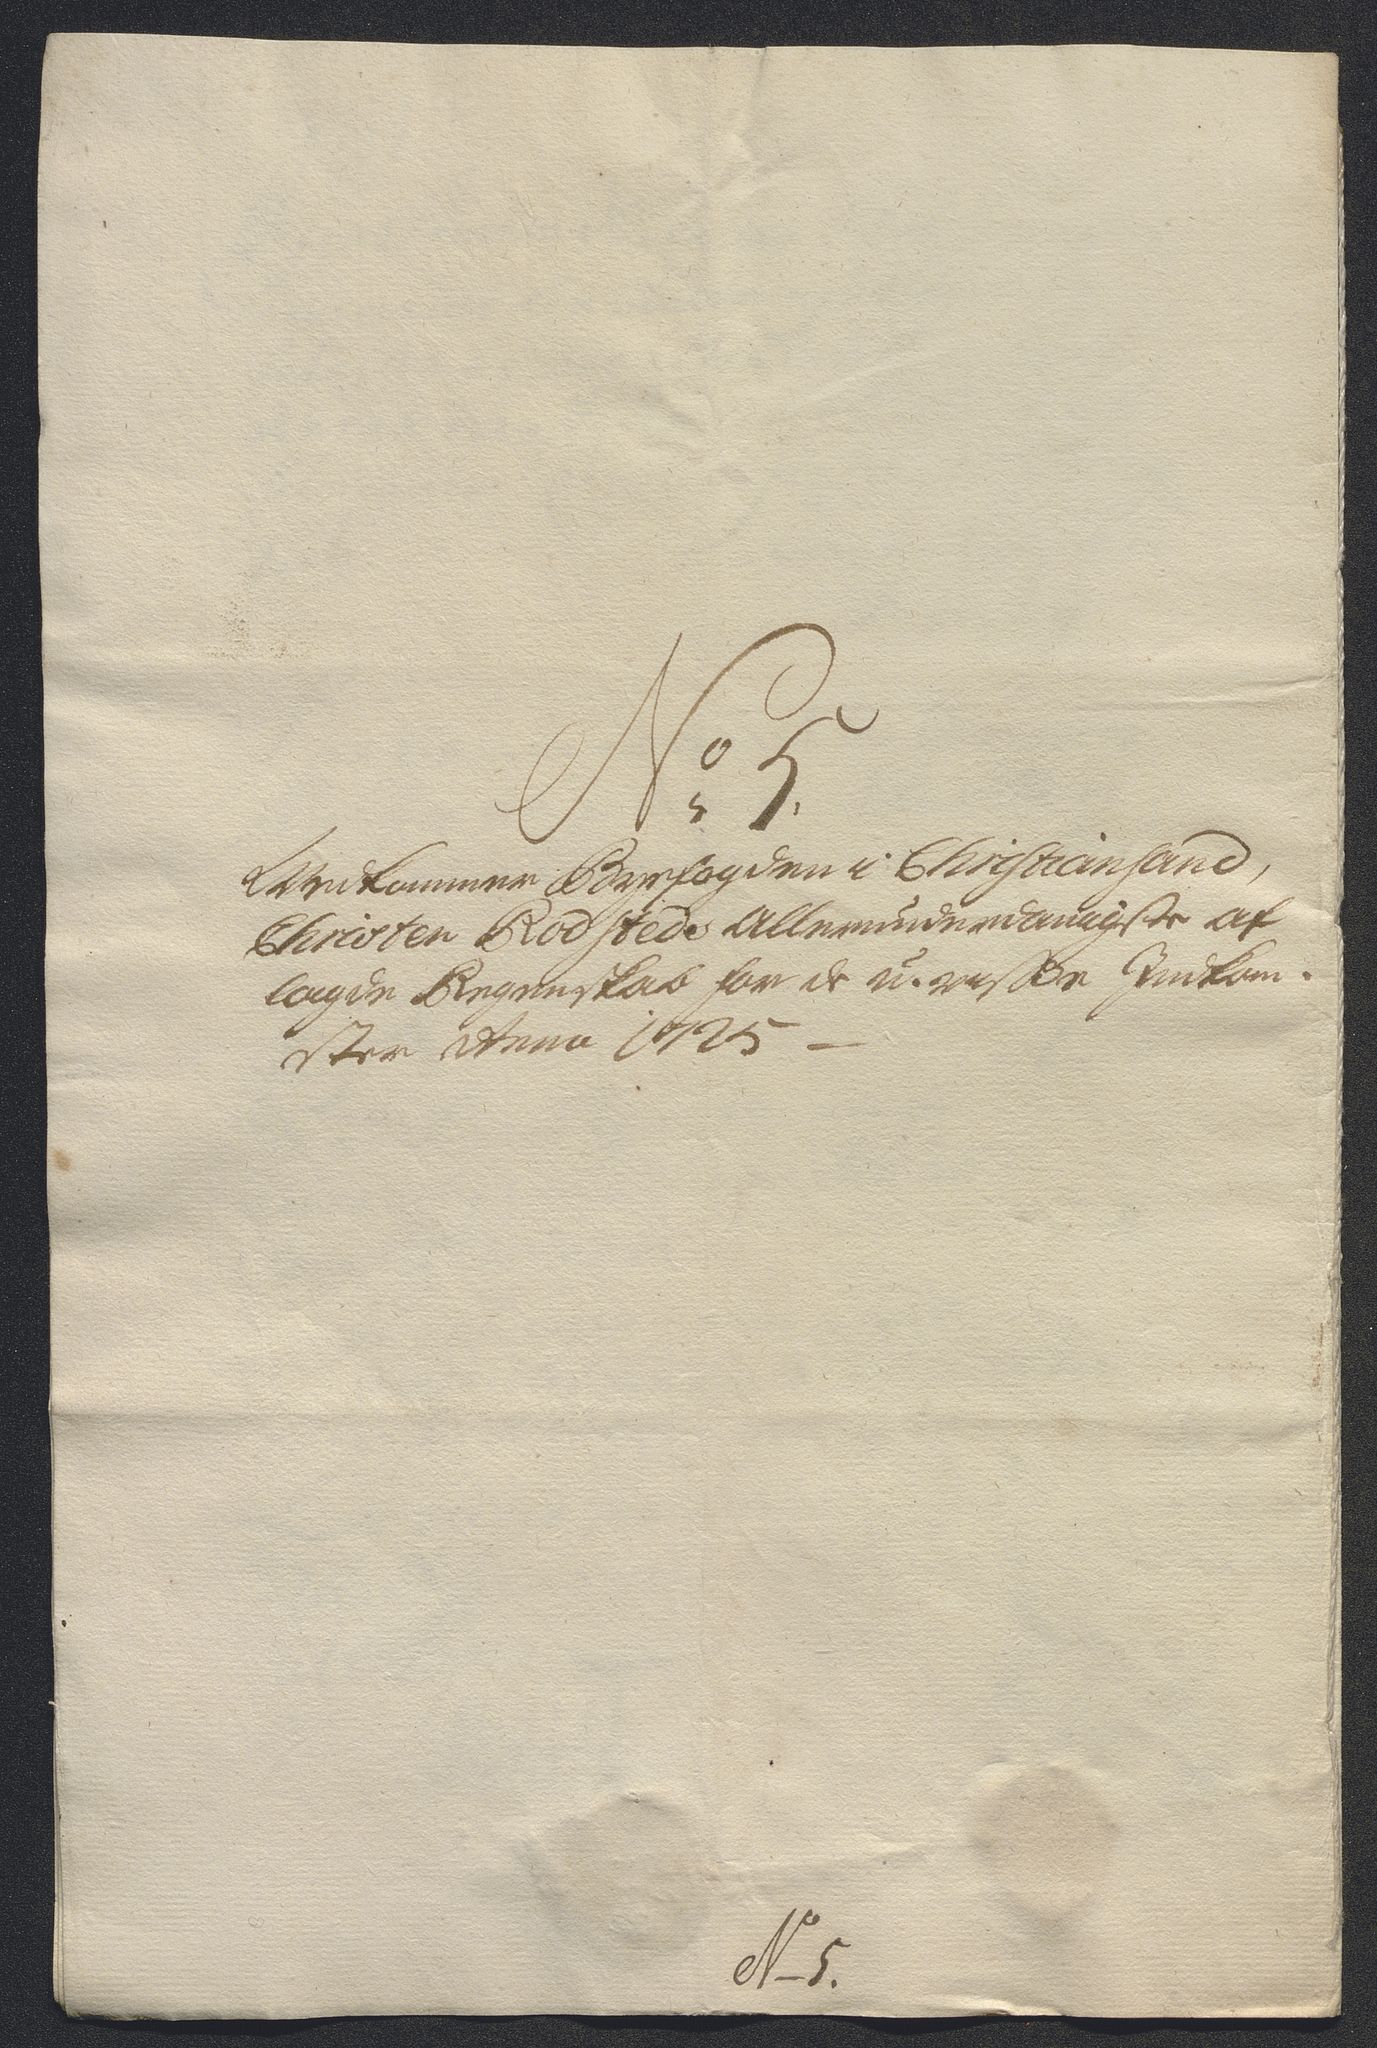 No 5.
Vedkommer Byefogden i Christiansand,
Christen Rodsteds Allerunderdanigste af
lagde Regenskab for de u-visse Indkom-
ster Anno 1725 —
No 5.